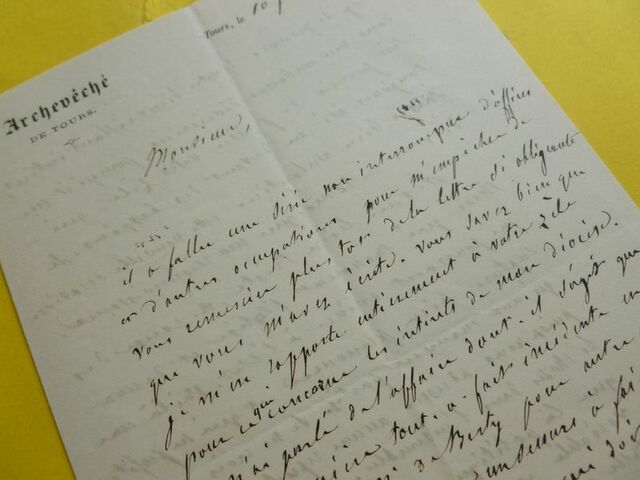 Archevêché
DE TOURS.
Tours, le 10
Monsieur,
il a fallu une série non interrompue d'offices
et d'autres occupations pour m'empêcher de
vous remercier plus tôt de la lettre si obligeante
que vous m'avez écrite. Vous savez bien que
je m'en rapporte entièrement à votre zèle
pour ce qui concerne les intérêts de mon diocèse.
J'ai parlé de l'affaire dont il s'agit que
tout-à-fait incidente
pour autre
a fai